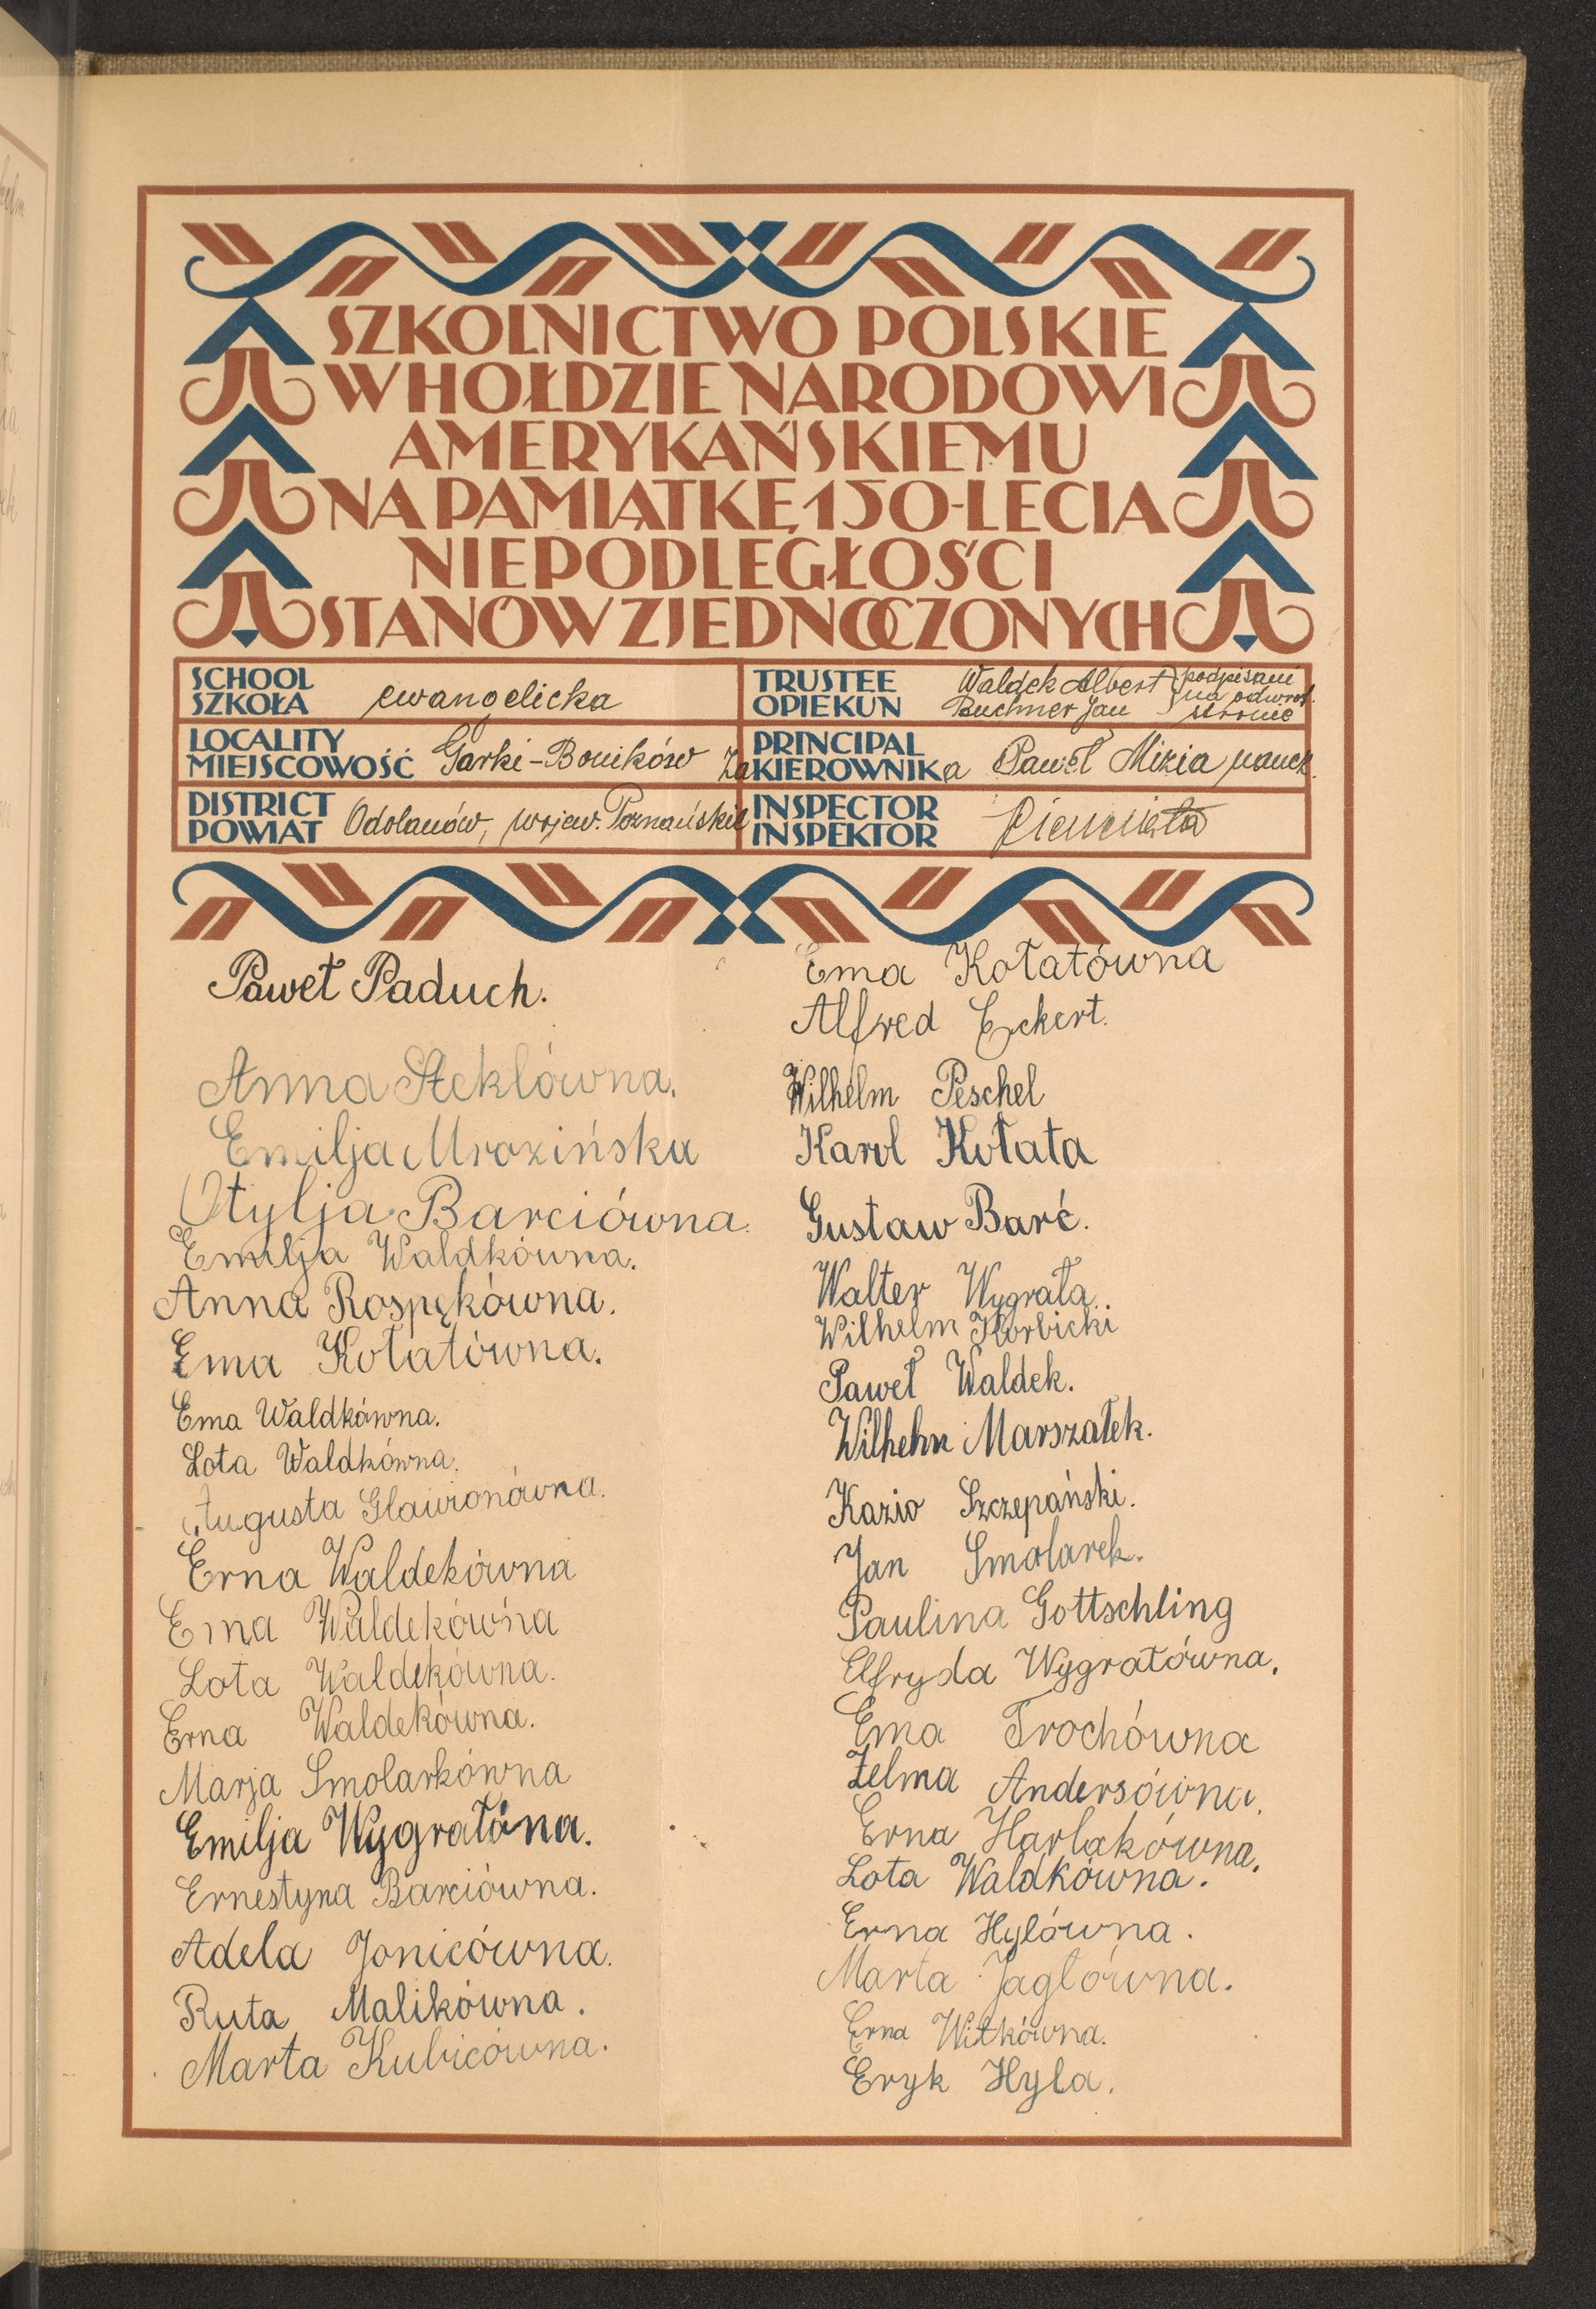 SZKOLNICTWO POLSKIE
W HOŁDZIE NARODOWI
AMERYKAŃSKIEMU
NA PAMIĄTKĘ 150-LECIA
NIEPODLEGŁOŚCI
STANÓW ZJEDNOCZONYCH
SCHOOL
SZKOŁA ewangelicka
TRUSTEE
OPIEKUN Waldek Albert podpisani
Buchner Jan na odwrot.
stronie
LOCALITY
MIEJSCOWOŚĆ Garki-Boników
PRINCIPAL
Za KIEROWNIKa Paweł Mizia naucz.
DISTRICT
POWIAT Odolanów, wojew. Poznańskie
INSPECTOR
INSPEKTOR
Paweł Paduch.
Anna Steklówna.
Emilja Mrozińska
Otylja Barciówna.
Emilja Waldkówna.
Anna Rospękówna.
Ema Kołatówna.
Ema Waldkówna.
Lota Waldkówna.
Augusta Glawionówna.
Erna Waldekówna
Erna Waldekówna
Lota Waldekówna.
Erna Waldekówna.
Marja Smolarkówna
Emilja Wygratóna.
Ernestyna Barciówna.
Adela Jonicówna.
Ruta Malikówna.
Marta Kubicówna.
Ema Kołatówna
Alfred Eckert.
Wilhelm Peschel
Karol Kołata
Gustaw Barć.
Walter Wygrała.
Wilhelm Korbicki
Paweł Waldek.
Wilhelm Marszałek.
Kazio Szczepański.
Jan Smolarek.
Paulina Gottschling
Elfryda Wygratówna.
Ema Trochówna
Zelma Andersówna.
Erna Harlakówna.
Lota Waldkówna.
Erna Hylówna.
Marta Jaglówna.
Erna Witkówna.
Eryk Hyla.